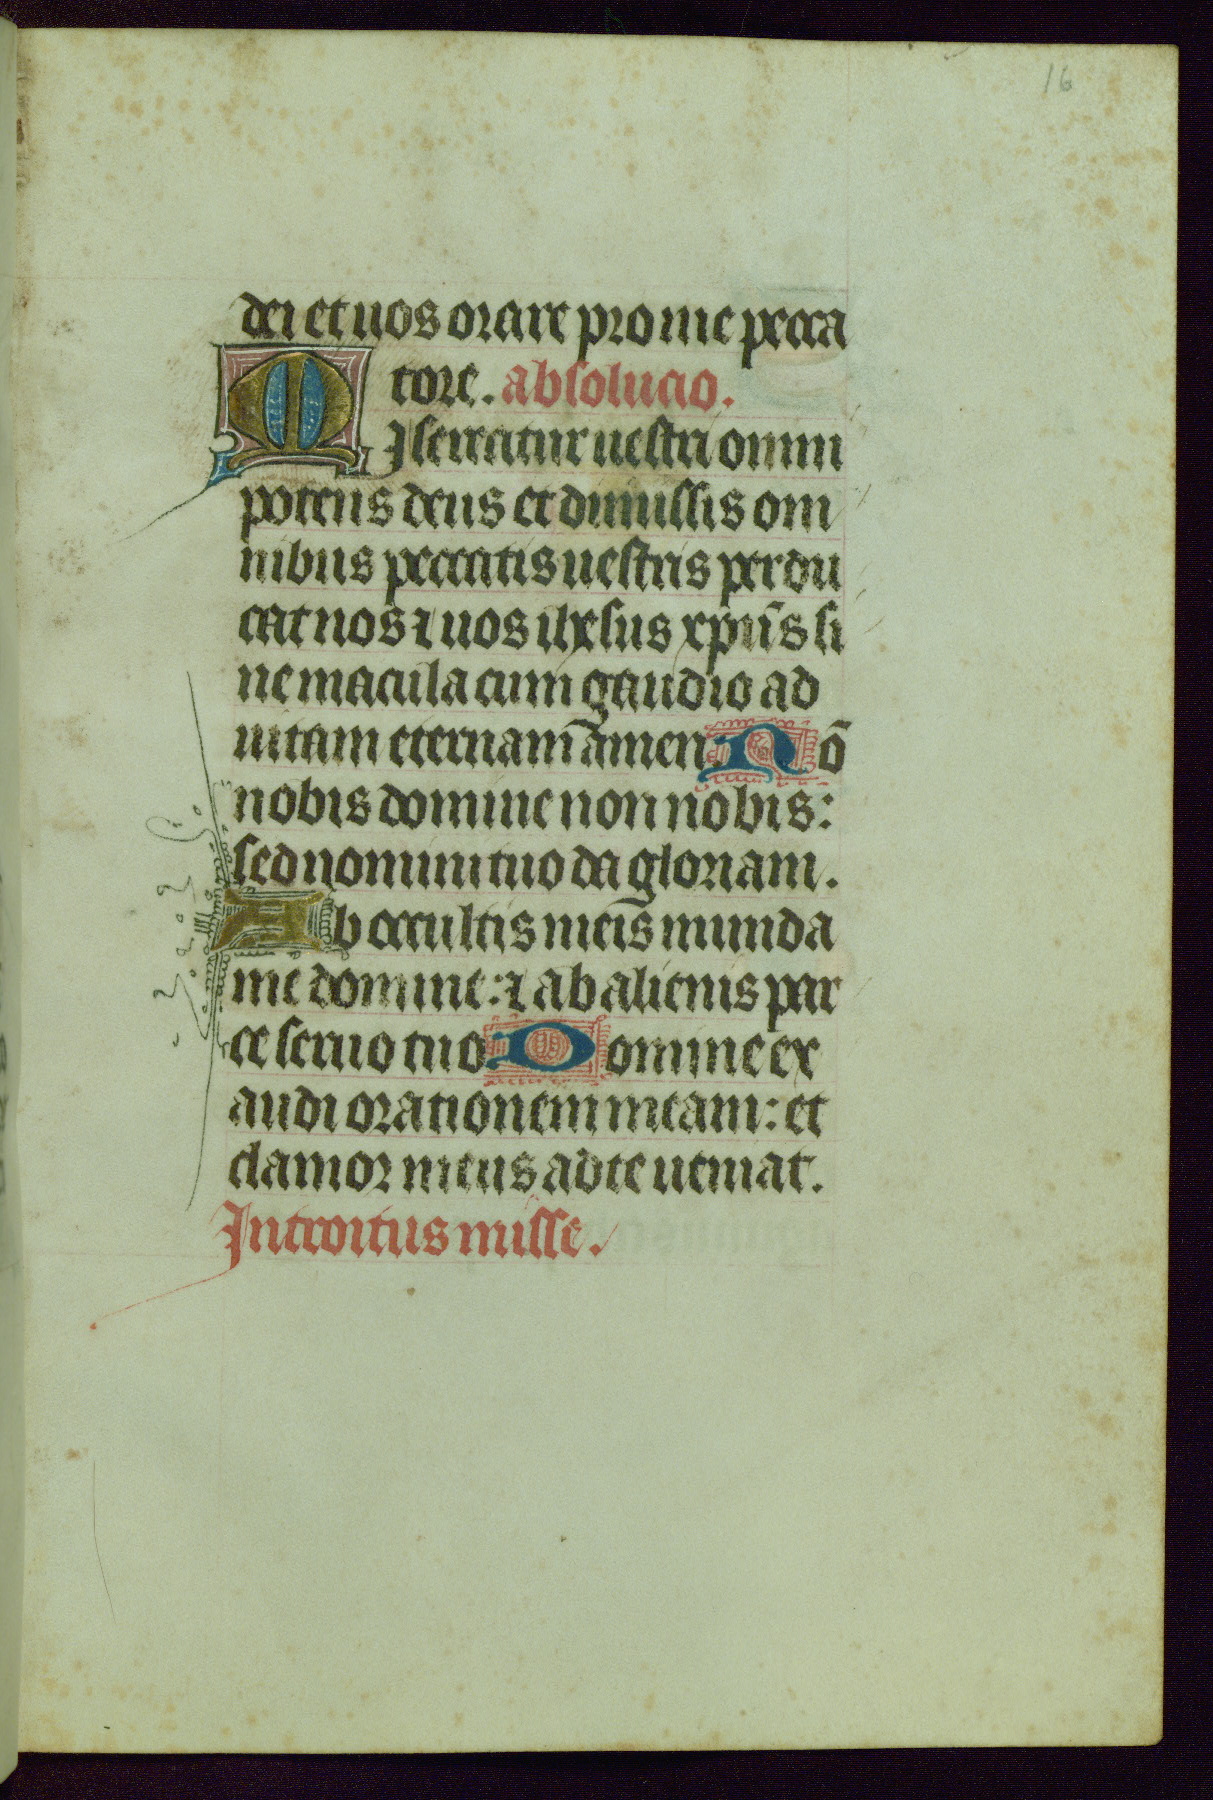 16
dei et uos orare pro me pecca
tore. absolucio.
Misereatur uestri omni
potens deus et dimissis om
nibus peccatis uestris perdu
cat nos ⁊ uos ihesus xpūs si
ne macula cum gaudio ad
uitam eternam amen. Nō
nobis domine non nobis:
sed nomini tuo da gloriam.
Ab occultis meis munda
me domine: ⁊ ab alienis par
ce seruo tuo. Domine ex
audi orationem meam: et
clamor meus ad te ueniat.
Introitus misse.